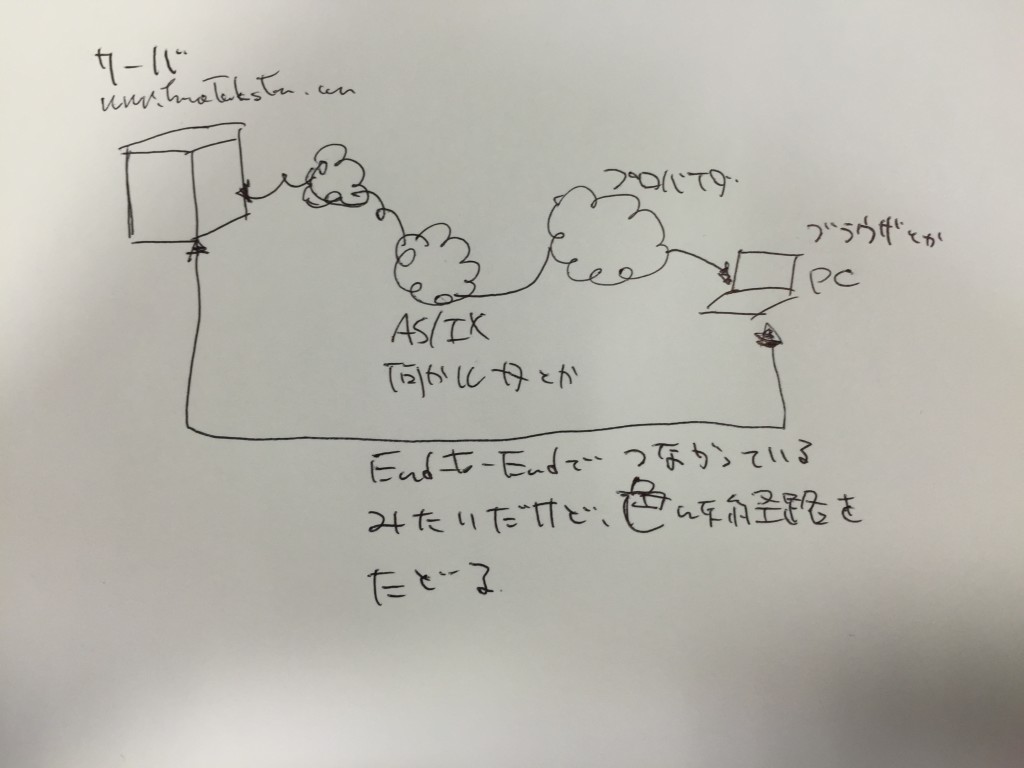 サーバ
プロバイダ
ブラウザとか
PC
AS/IX
とか
End to Endで つながっている
みたいだけど、色々な経路を
たどる